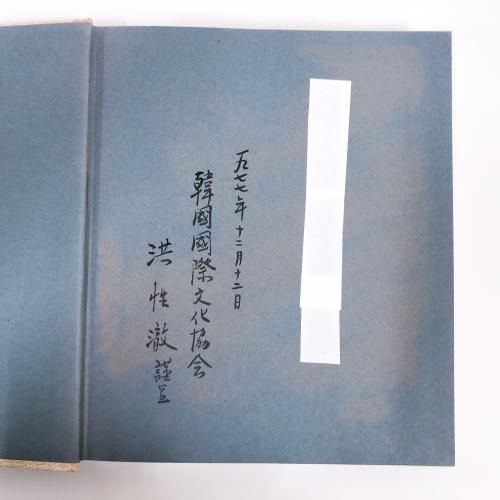 一九七七年十二月十二日
韓國國際文化協会
洪性澈謹呈